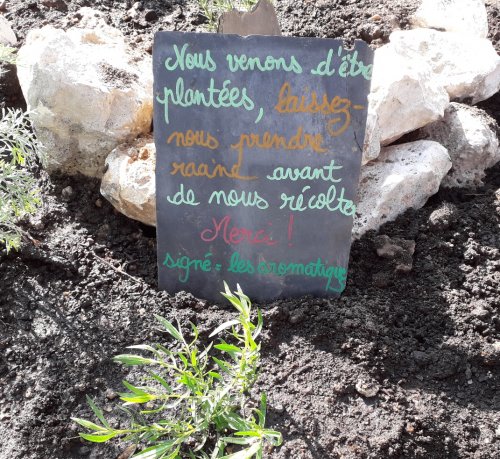 Nous venons d'être
plantées, laissez-
nous prendre
racine avant
de nous récolter
Merci !
signé = les aromatiques